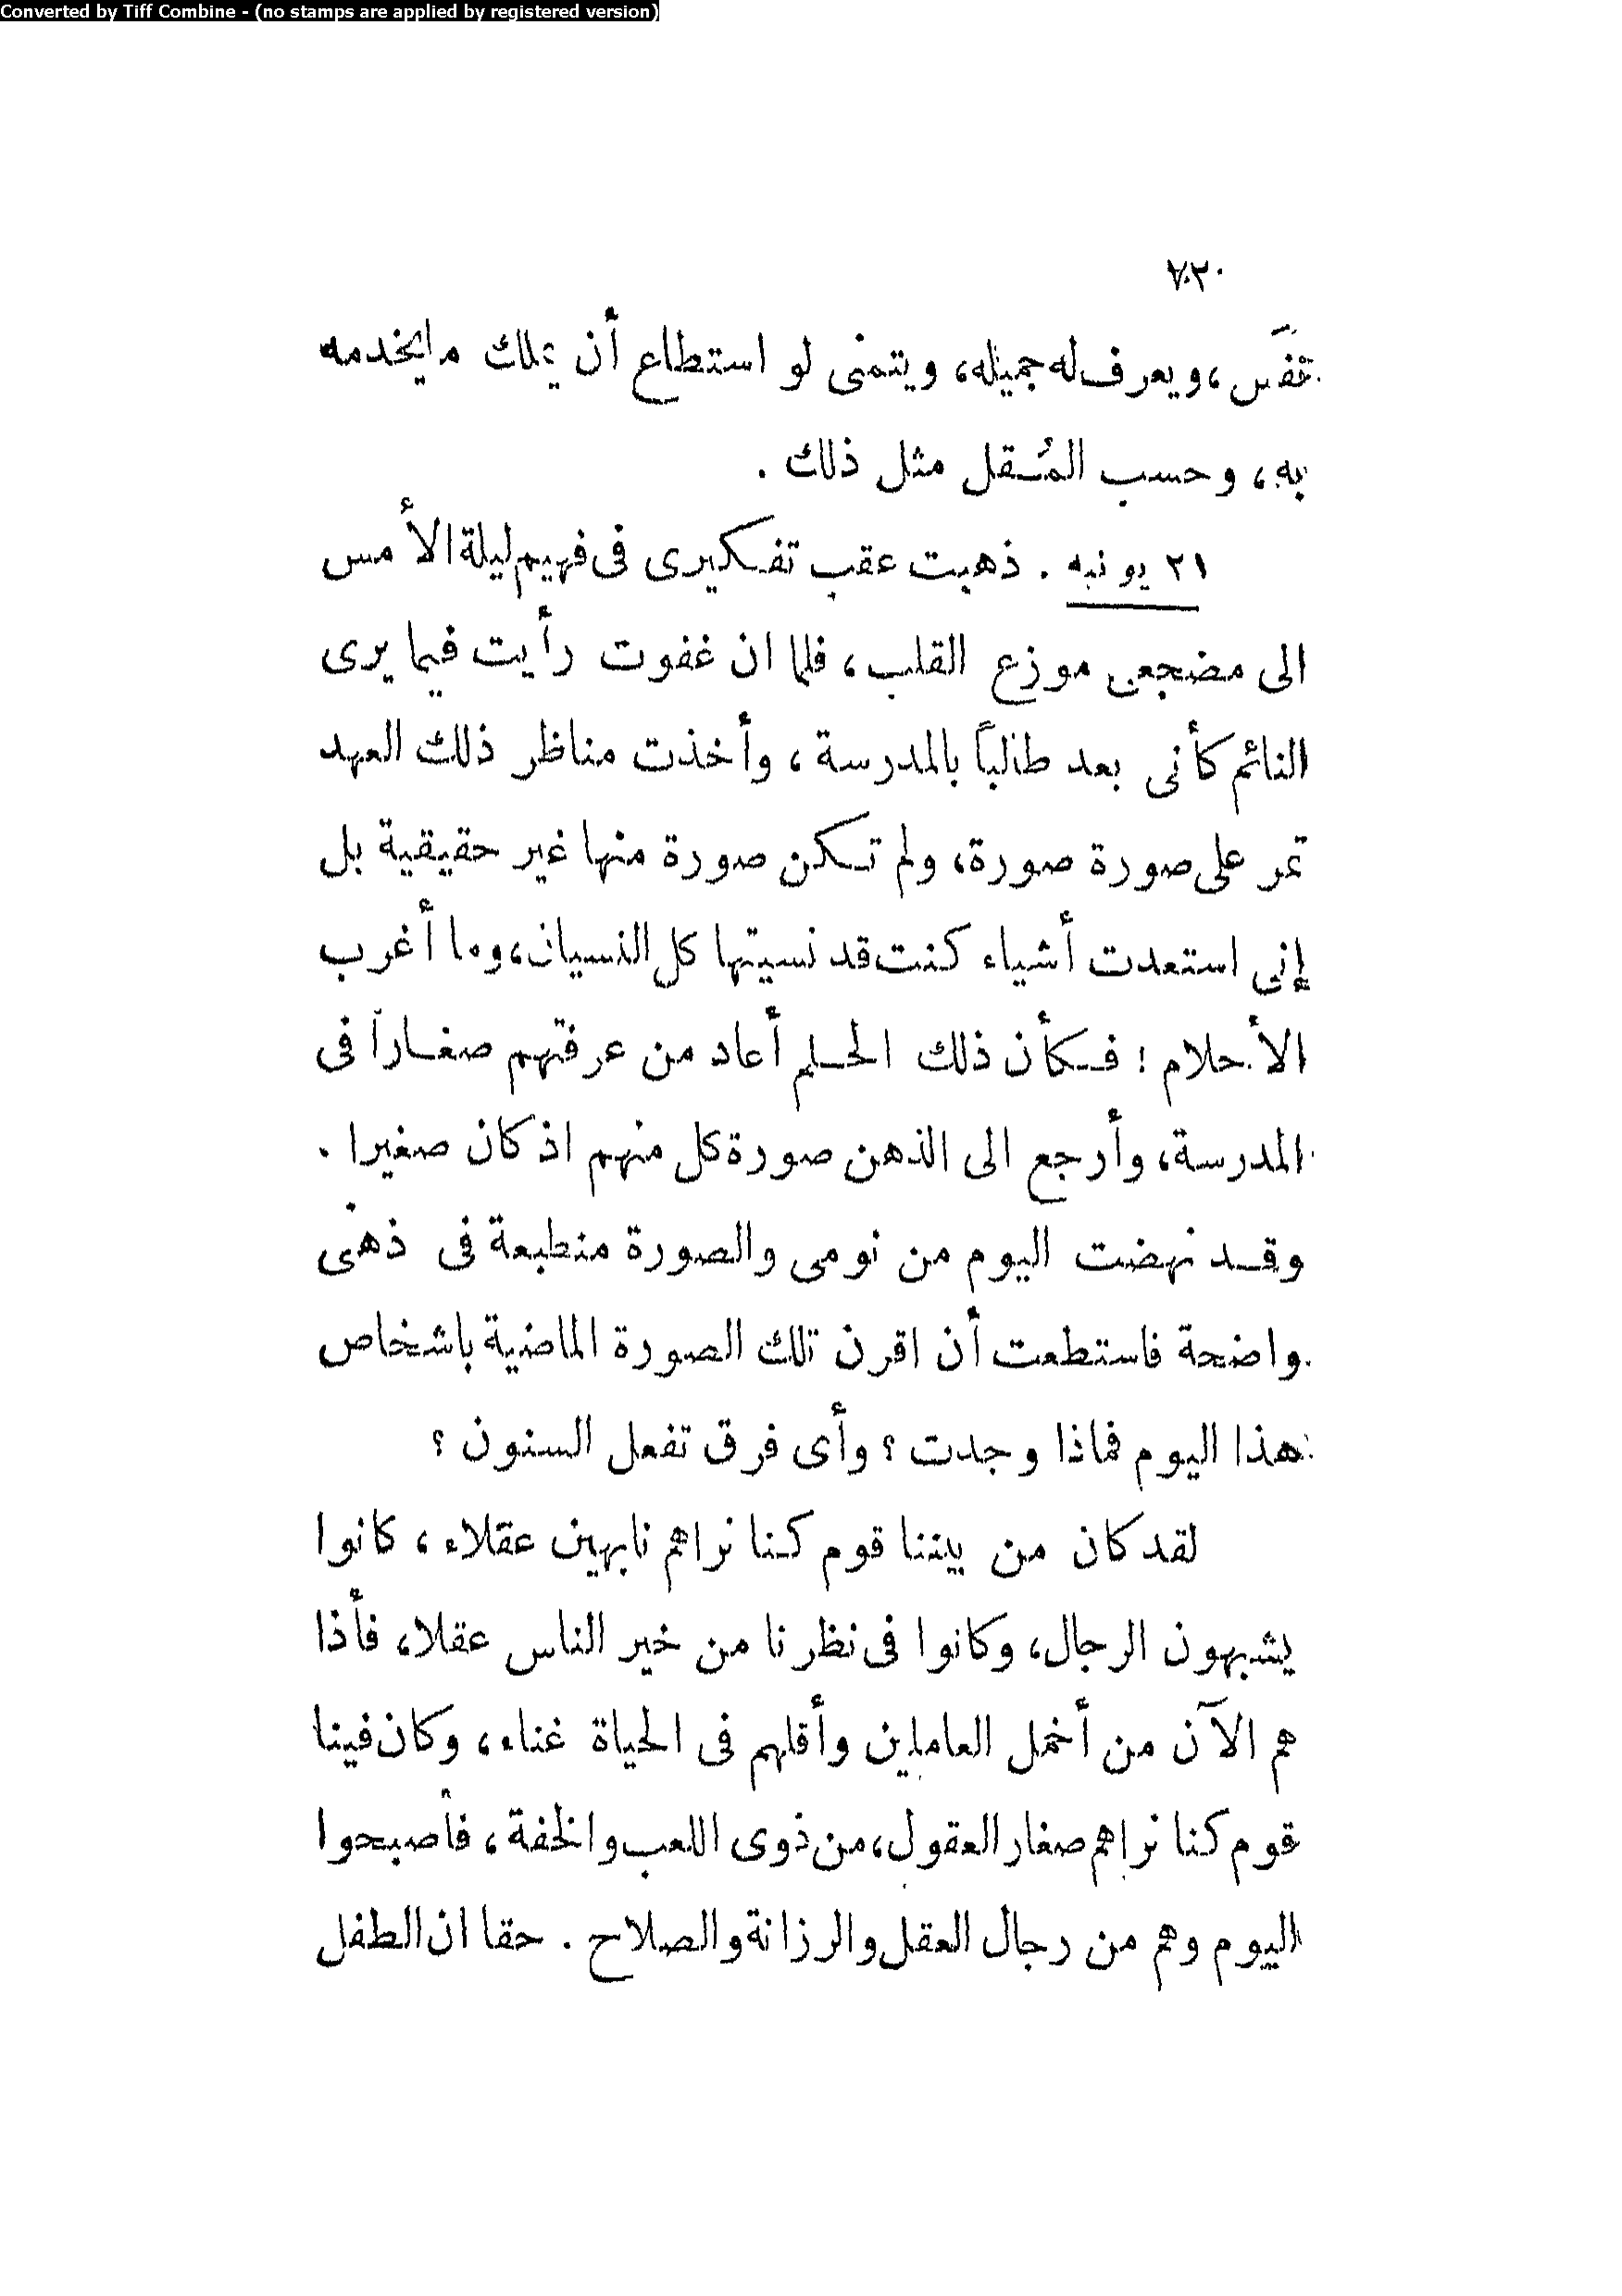 Converted by Tiff Combine - (no stamps are applied by registered version)
نفس، ويعرف له جميله، ويتمنى لو استطاع أن يملك ما يخدمه
به، وحسب المُقل مثل ذلك .
٢١ يونيه . ذهبت عقب تفكيرى فى فهيم ليلة الأمس
الى مضجعى موزع القلب، فلما ان غفوت رأيت فيما يرى
النائم كأنى بعد طالباً بالمدرسة، وأخذت مناظر ذلك العهد
تمر على صورة صورة، ولم تكن صورة منها غير حقيقية بل
إنى استعدت أشياء كنت قد نسيتها كل النسيان، وما أغرب
الأحلام ! فكأن ذلك الحلم أعاد من عرفتهم صغاراً فى
المدرسة، وأرجع الى الذهن صورة كل منهم اذ كان صغيرا .
وقد نهضت اليوم من نومى والصورة منطبعة فى ذهنى
واضحة فاستطعت أن اقرن تلك الصورة الماضية باشخاص
هذا اليوم فماذا وجدت ؟ وأى فرق تفعل السنون ؟
لقد كان من بيننا قوم كنا نراهم نابهين عقلاء، كانوا
يشبهون الرجال، وكانوا فى نظرنا من خير الناس عقلا، فأذا
هم الآن من أخمل العاملين وأقلهم فى الحياة غناء، وكان فينا
قوم كنا نراهم صغار العقول، من ذوى اللعب والخفة، فأصبحوا
اليوم وهم من رجال العقل والرزانة والصلاح . حقا ان الطفل